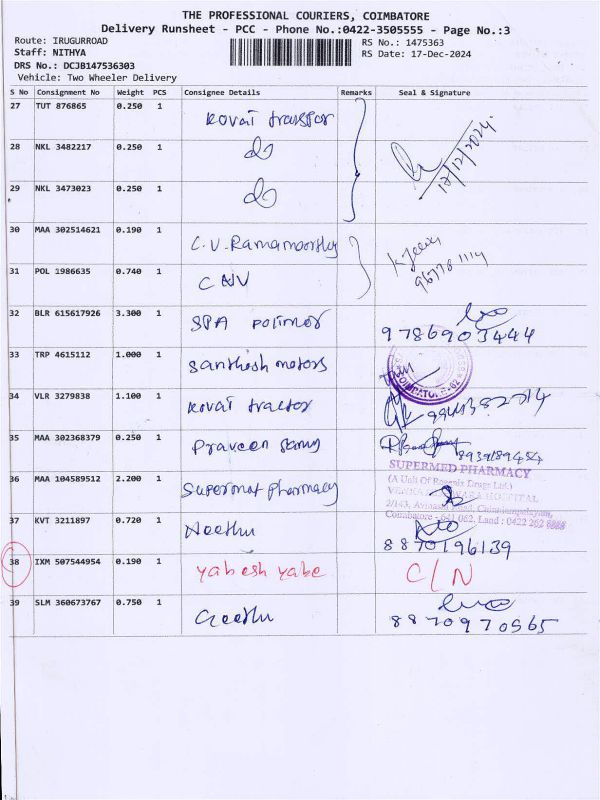 THE PROFESSIONAL COURIERS, COIMBATORE
Delivery Runsheet - PCC - Phone No.:0422-3505555 - Page No.:3
Route: IRUGURROAD
RS No.: 1475363
Staff: NITHYA
RS Date: 17-Dec-2024
DRS No.: DCJB147536303
Vehicle: Two Wheeler Delivery
S No Consignment No Weight PCS Consignee Details Remarks Seal & Signature
27 TUT 876865 0.250 1 Kovai transfor
28 NKL 3482217 0.250 1 do
17/12/2024
29 NKL 3473023 0.250 1 do
30 MAA 302514621 0.190 1 C.V. Ramamoorthy
31 POL 1986635 0.740 1
32 BLR 615617926 3.300 1 SPA polimer
9786903444
33 TRP 4615112 1.000 1 Santhosh motors
34 VLR 3279838 1.100 1 Kovai tractor
35 MAA 302368379 0.250 1 Praveen
8939189454
SUPERMED PHARMACY
36 MAA 104589512 2.200 1 Supermat pharmacy
(A Unit Of Drugs Ltd)
HOSPITAL
2/143, Avinashi Road, Chinniampalayam,
Coimbatore - 641 062. Land : 0422 262 8888
37 KVT 3211897 0.720 1 Neethu
8870196139
38 IXM 507544954 0.190 1 yabesh yabe C/N
39 SLM 360673767 0.750 1 Geethu
8870970565